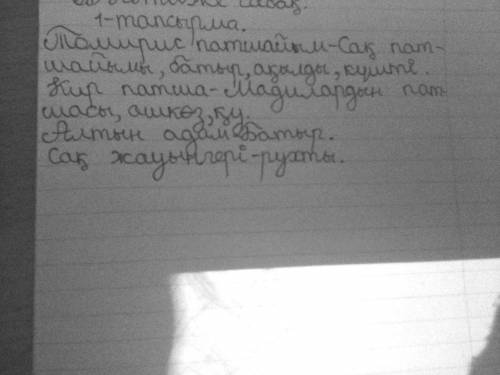 сабақ.
1-тапсырма.
Томирис патшайым-Сақ пат-
шайымы, батыр, ақылды, күшті.
Кир патша-Мадилардын пат
шасы, ашкөз, қу.
Алтын адам-Батыр.
Сақ жауынгері-рухты.